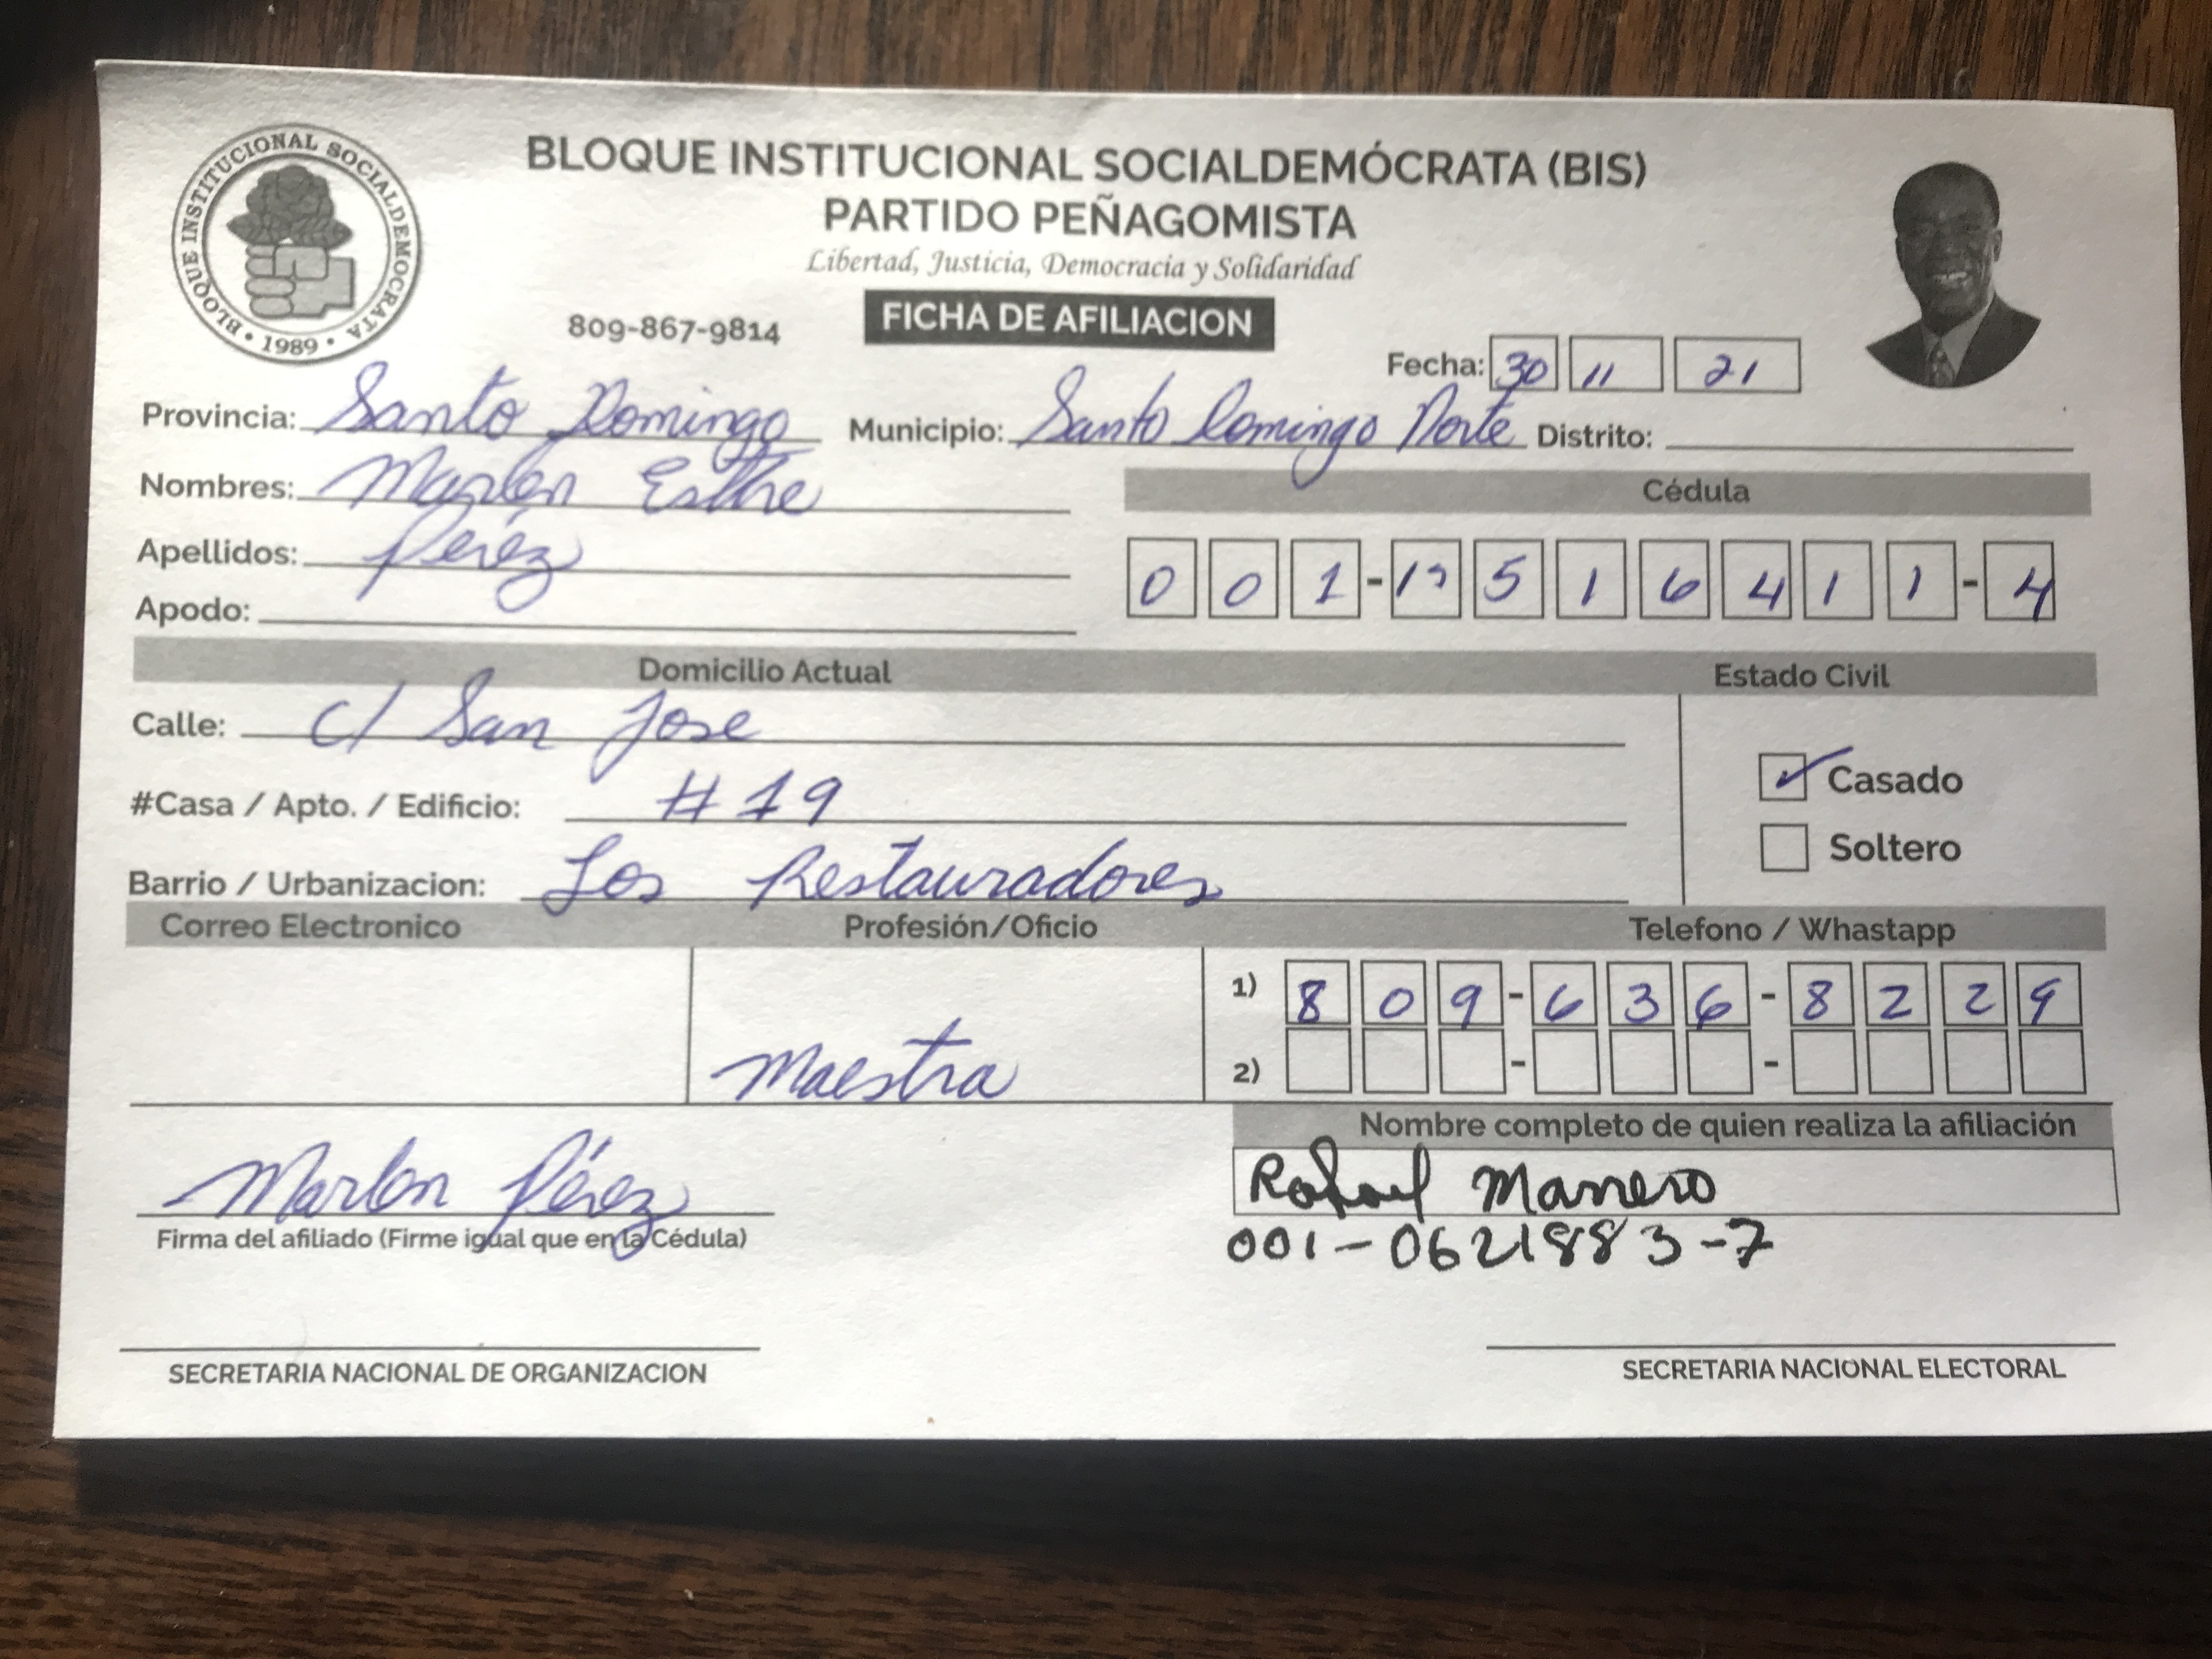 BLOQUE INSTITUCIONAL SOCIALDEMOCRATA
• 1989 •
BLOQUE INSTITUCIONAL SOCIALDEMÓCRATA (BIS)
PARTIDO PEÑAGOMISTA
Libertad, Justicia, Democracia y Solidaridad
809-867-9814
FICHA DE AFILIACION
Fecha: 30 11 21
Provincia: Santo Domingo Municipio: Santo Domingo Norte Distrito:
Nombres: Marlen Esthe
Cédula
Apellidos: Pérez
0 0 1 - 1 5 1 6 4 1 1 - 4
Apodo:
Domicilio Actual
Estado Civil
Calle: C/ San Jose
Casado
#Casa / Apto. / Edificio: # 19
Soltero
Barrio / Urbanizacion: Los Restauradores
Correo Electronico Profesión/Oficio Telefono / Whastapp
1) 8 0 9 - 6 3 6 - 8 2 2 9
Maestra
2) - -
Nombre completo de quien realiza la afiliación
Rafael Marrero
001-0621883-7
Marlen Pérez
Firma del afiliado (Firme igual que en la Cédula)
SECRETARIA NACIONAL DE ORGANIZACION
SECRETARIA NACIONAL ELECTORAL